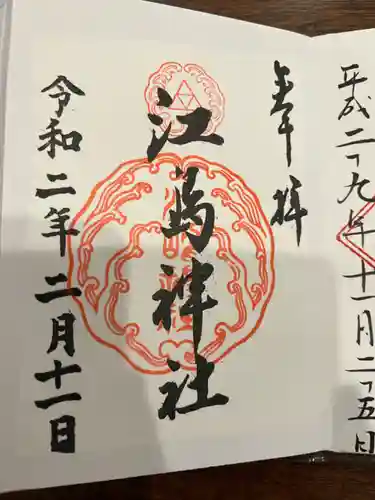 奉拝
江島神社
令和二年二月十一日
平成二十九年十一月二十五日